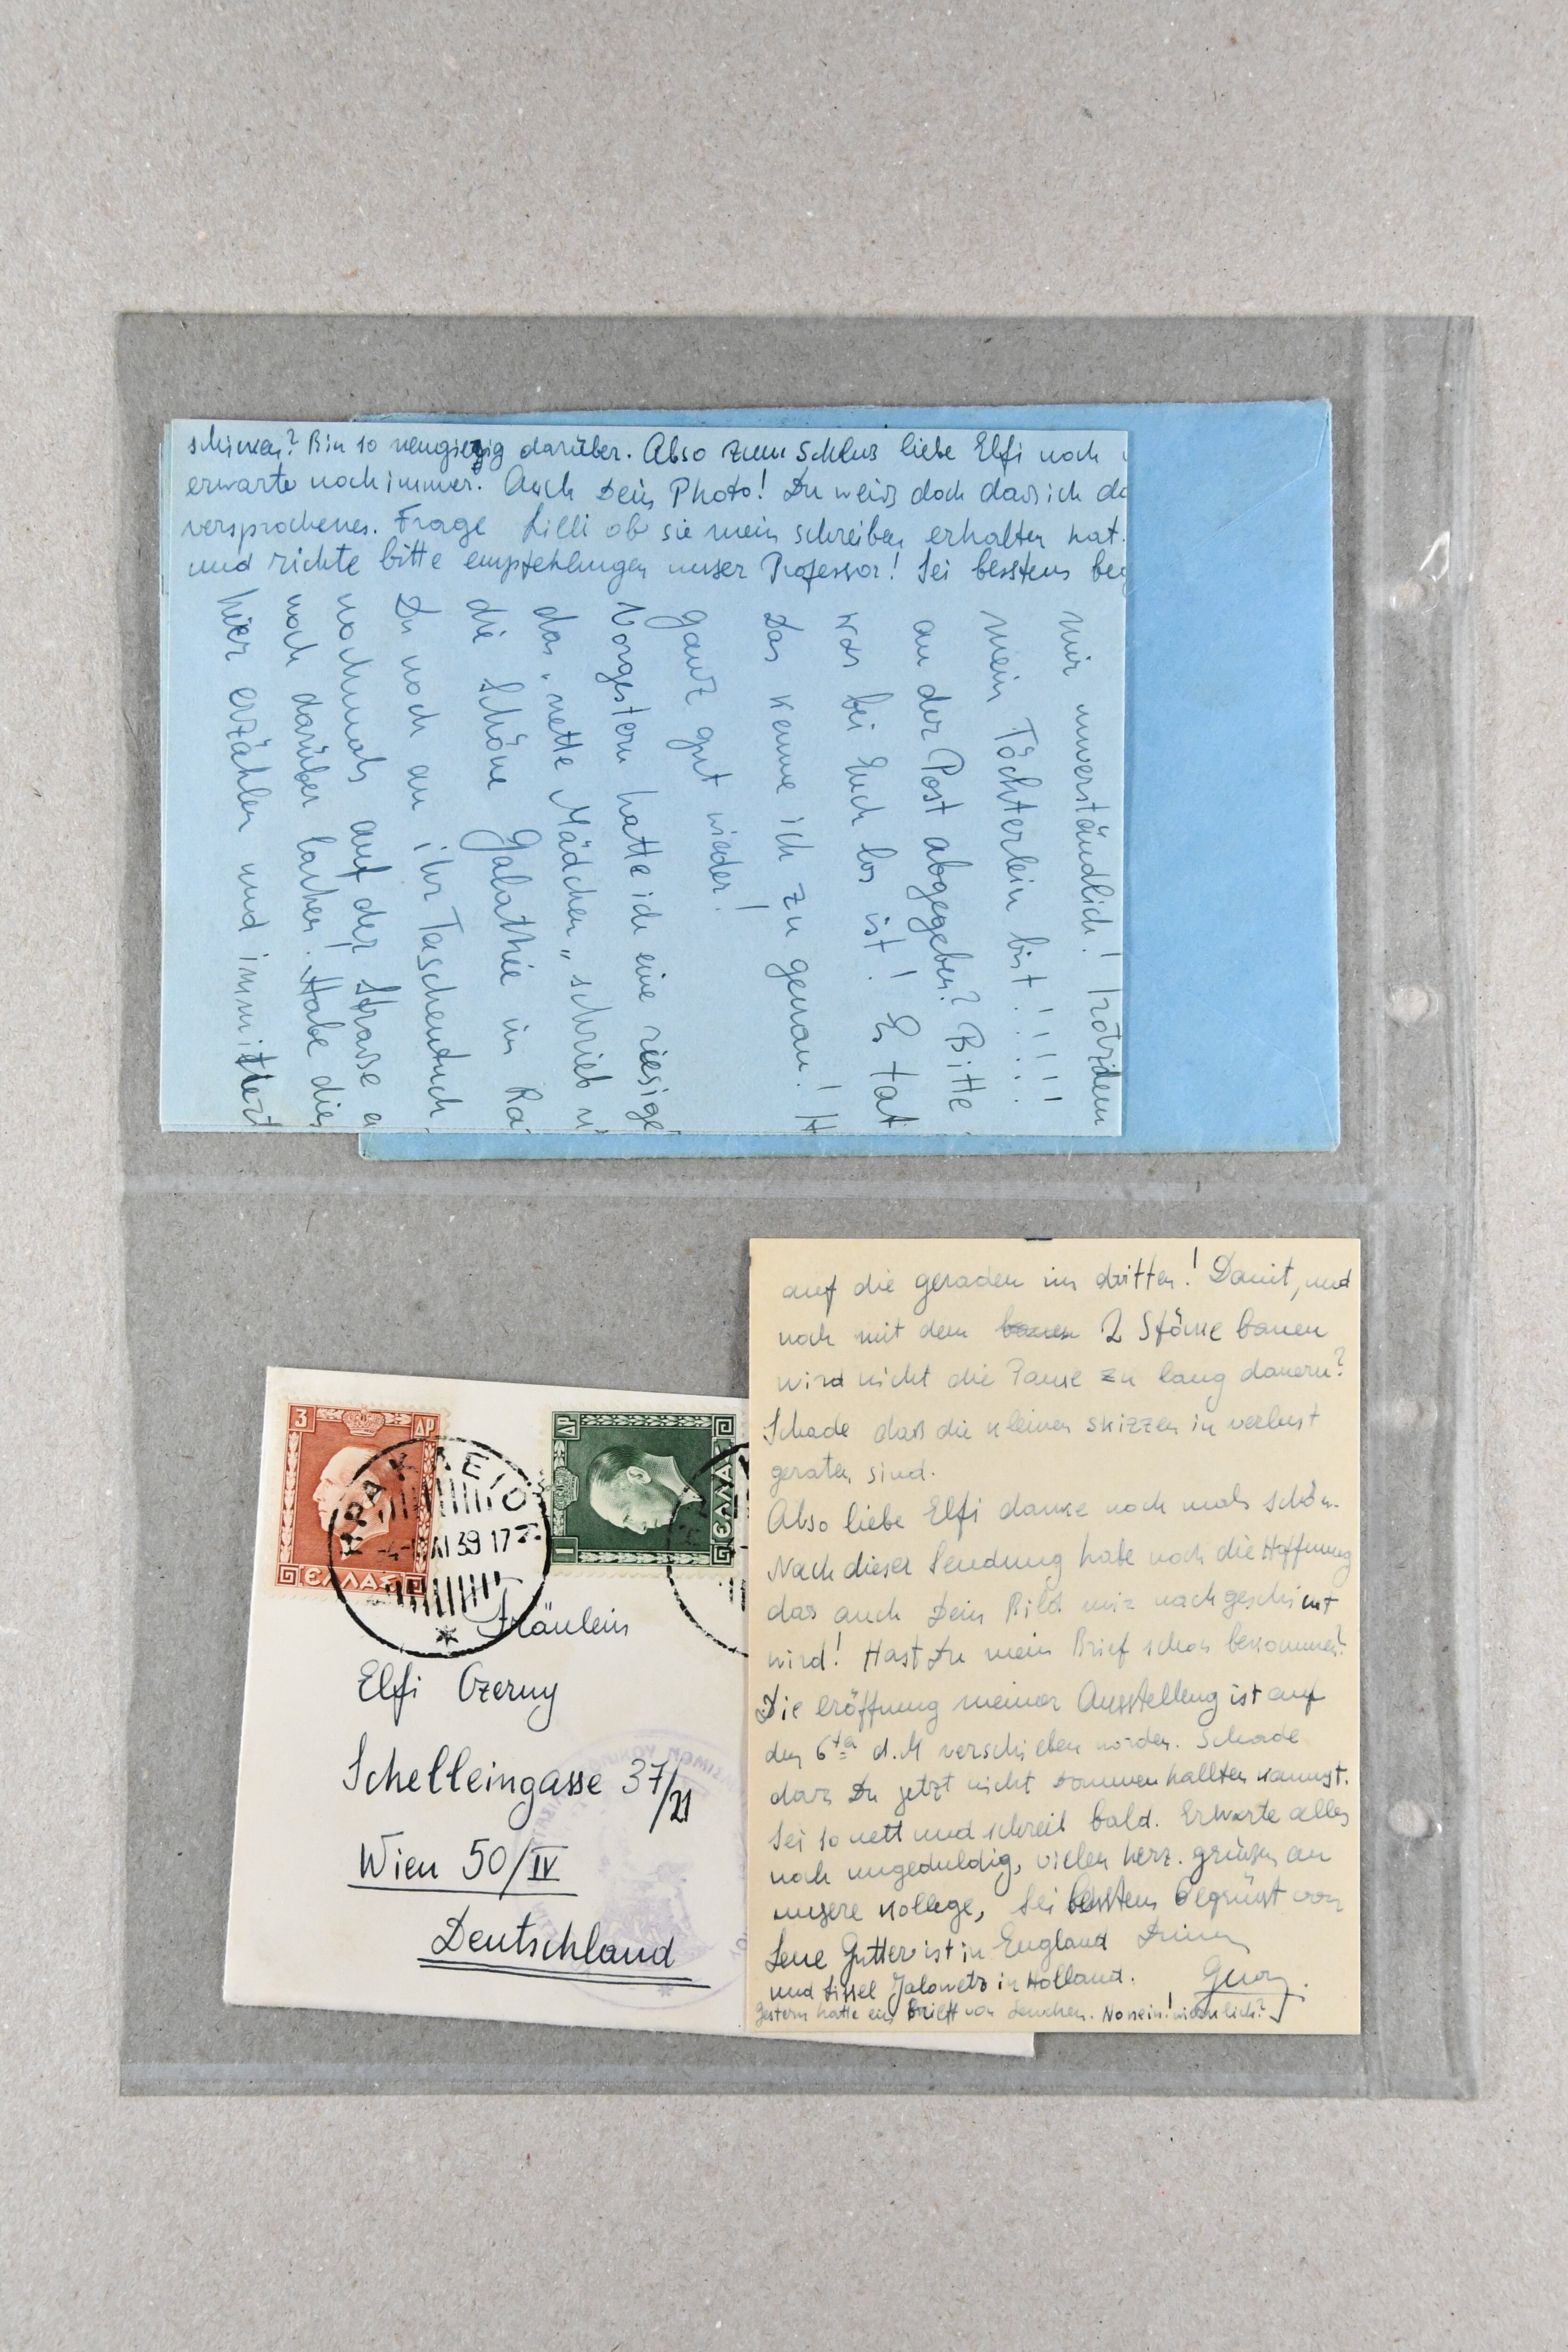 schicken? Bin so neugierig darüber. Also zum Schluß liebe Elfi noch
erwarte noch immer. Auch Dein Photo! Du weiß doch das ich
versprochenes. Frage Lilli ob sie mein schreiben erhalten hat.
und richte bitte empfehlungen unser Professor! Sei besstens
mir unverständlich! Trotzdem
mein Töchterlein bist!!!!!
an der Post abgegeben? Bitte
was bei Euch los ist! Es tat
Das kenne ich zu genau!
ganz gut wieder!
Vorgestern hatte ich eine riesige
das „nette Mädchen„ schrieb
die Schöne Galathée in
Du noch an ihr Taschentuch
nochmals auf der Strasse
noch darüber lachen. Habe die
hier erzählen und immitiert
3 ΔΡ
ΕΛΛΑΣ
ΗΡΑΚΛΕΙΟΝ
XI 39 17
1 ΔΡ
ΕΛΛΑΣ
Fräulein
Elfi Czerny
Schelleingasse 37/21
Wien 50/IV
Deutschland
auf die geraden im dritten! Damit, und
noch mit dem 2 Stöcke bauen
wird nicht die Pause zu lang dauern?
Schade daß die kleinen skizzen in verlust
geraten sind.
Also liebe Elfi danke noch mals schön.
Nach dieser Sendung habe noch die Hoffnung
das auch Dein Bild mir nachgeschickt
wird! Hast Du mein Brief schon bekommen?
Die eröffnung meiner Ausstellung ist auf
den 6ten d.M verschieben worden. Schade
dass Du jetzt nicht kannst.
Sei so nett und schreib bald. Erwarte alles
noch ungeduldig, vielen herz. grüßen an
unsere Kollege, Sei besstens begrüsst von
Lene Gutter ist in England Deinen
und Lissel Jalowetz in Holland. Georg.
Gestern hatte ein Brieff von Lenchen. No nein!